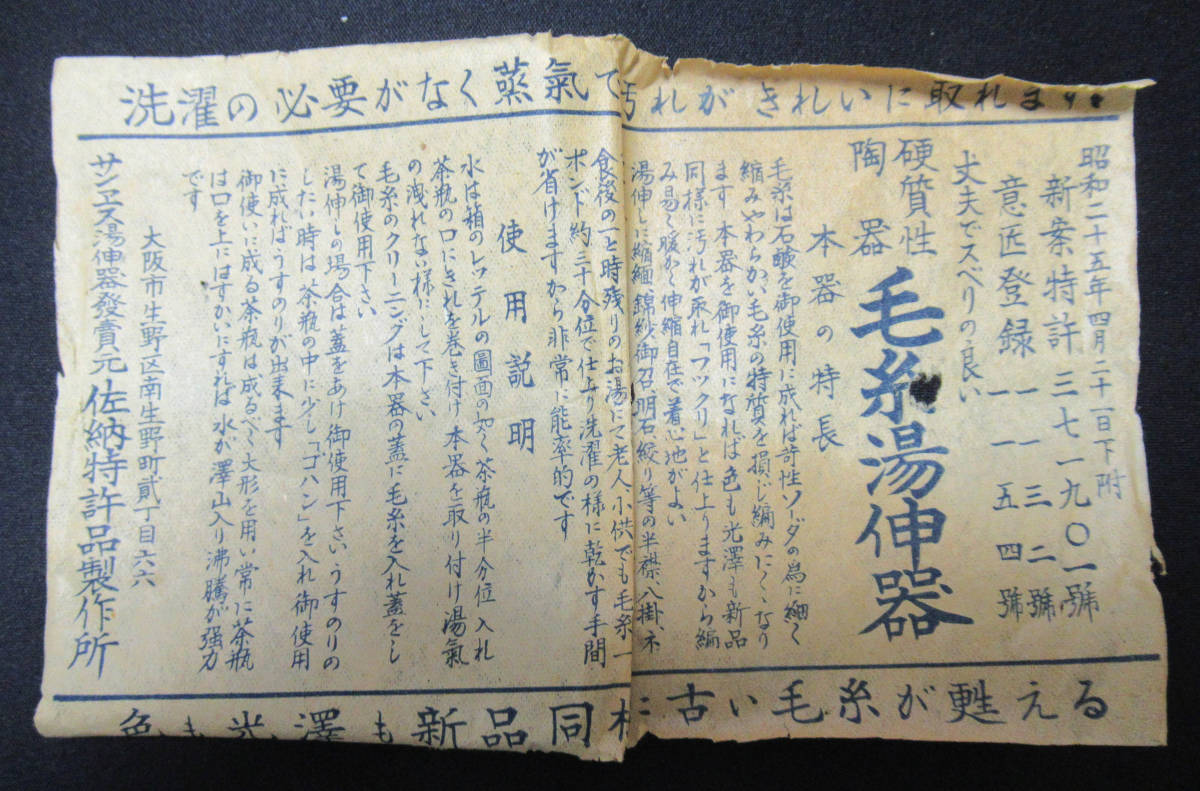 洗濯の必要がなく蒸氣で汚れがきれいに取れます
昭和二十五年四月二十一日下附
新案特許三七一九〇一號
意匠登録一一三二號
一一五四號
丈夫でスベリの良い
硬質性
陶器
毛糸湯伸器
本器の特長
毛糸は石鹸を御使用に成れば苛性ソーダの為に細く
縮みやわらかい毛糸の特質を損じ編みにくくなり
ます 本器を御使用になれば色も光澤も新品
同様に汚れが取れ「フックリ」と仕上りますから編
み易く暖かく伸縮自在で着心地がよい
湯伸しに縮緬、錦紗、御召、明石、絞り等の半襟、八掛、ネ
食後の一と時残りのお湯にて老人、小供でも毛糸一
ポンド約三十分位で仕上り洗濯の様に乾かす手間
が省けますから非常に能率的です
使用説明
水は箱のレッテルの圖面の如く茶瓶の半分位入れ
茶瓶の口にきれを巻き付け本器を取り付け湯氣
の洩れない様にして下さい
毛糸のクリーニングは本器の蓋に毛糸を入れ蓋をし
て御使用下さい
湯伸しの場合は蓋をあけ御使用下さい うすのりの
したい時は茶瓶の中に少し「ゴハン」を入れ御使用
に成ればうすのりが出来ます
御使いに成る茶瓶は成るべく大形を用い常に茶瓶
は口を上にはすかいにすれば水が澤山入り沸騰が強力
です
大阪市生野区南生野町貳丁目六六
サンエス湯伸器發賣元 佐納特許品製作所
色も光澤も新品同様に古い毛糸が甦える